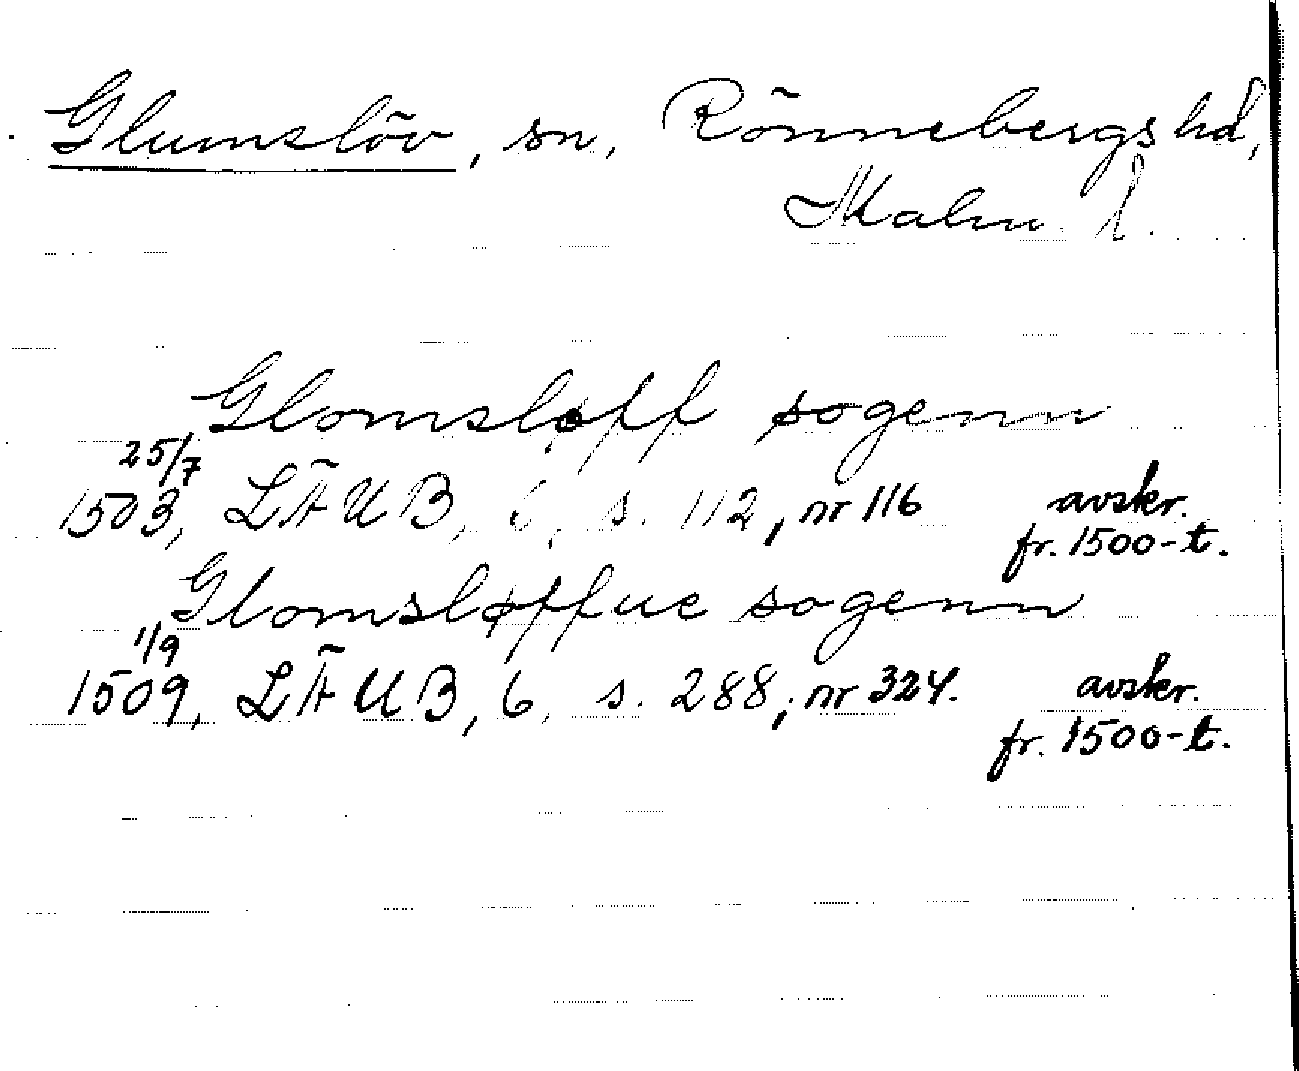 Glumslöv, sn, Rönnebergs hd,
Malm. l.
Glomsløff sogenn
25/7
1503, LÄUB, 6, s. 112, nr 116 avskr.
fr. 1500-t.
Glomsløffue sogenn
1/9
1509, LÄUB, 6, s. 288, nr 324. avskr.
fr. 1500-t.